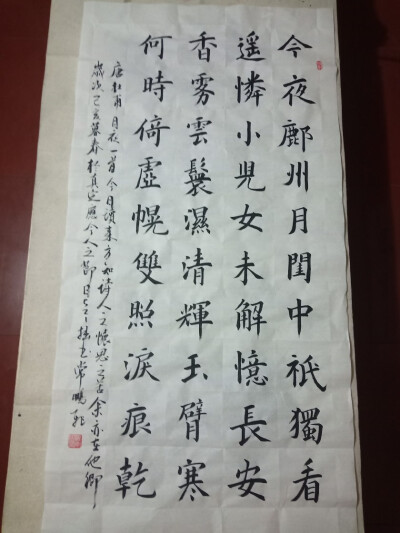 今夜鄜州月閨中祇獨看
遥憐小兒女未解憶長安
香雾雲鬟濕清輝玉臂寒
何時倚虛幌雙照淚痕乾
唐杜甫月夜一首今日讀來方知詩人之思之苦余亦在他鄉
歲次己亥暮春於真定應今人之節日